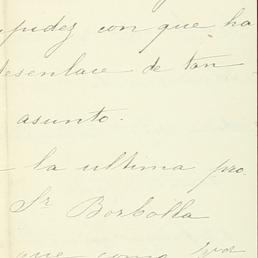 pidez con que ha
desenlace de tan
asunto.
la ultima pro-
Sr Borbolla
que como